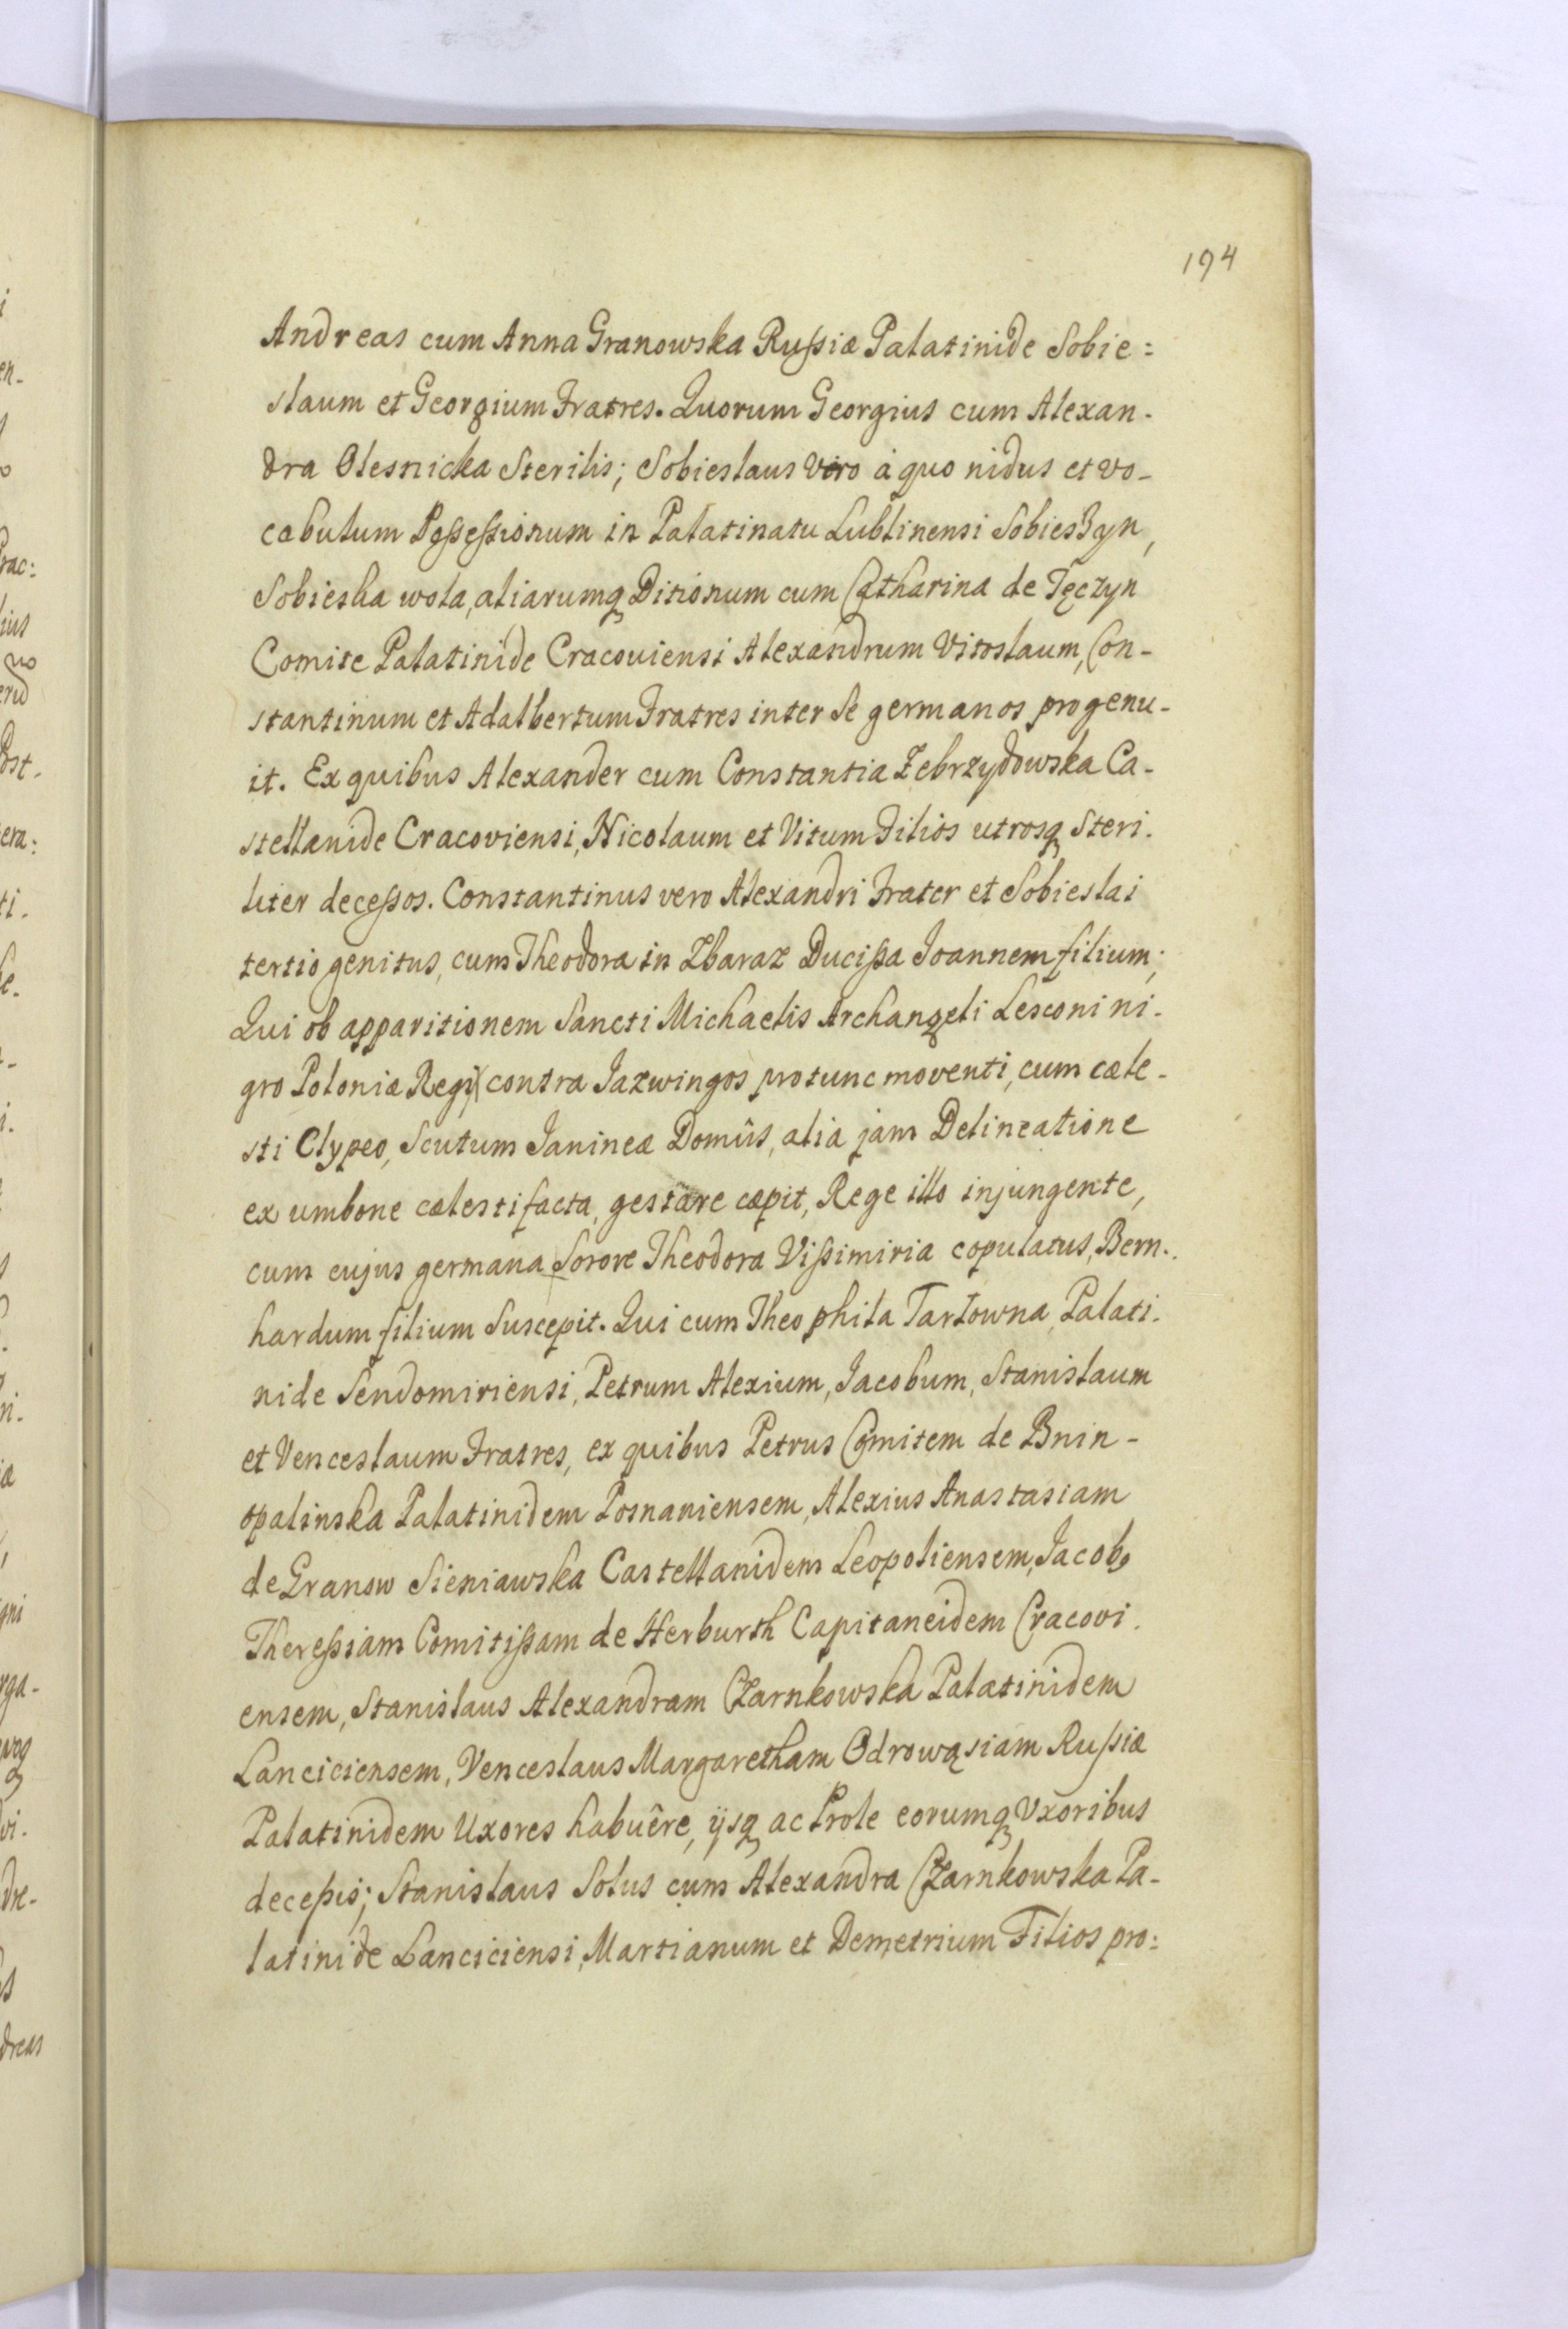 194
Andreas cum Anna Granowska Rußiæ Palatinide Sobie:
slaum et Georgium Fratres. Quorum Georgius cum Alexan-
dra Olesnicka Sterilis; Sobieslaus vero à quo nidus et vo-
cabulum Poßeßionum in Palatinatu Lublinensi Sobieszyn,
Sobieska wola, aliarumq Ditionum cum Catharina de Tęczyn
Comite Palatinide Cracoviensi Alexandrum Vitoslaum, Con-
stantinum et Adalbertum Fratres inter Se germanos progenu-
it. Ex quibus Alexander cum Constantia Zebrzydowska Ca-
stellanide Cracoviensi, Nicolaum et Vitum Filios utrosq Steri-
liter deceßos. Constantinus vero Alexandri Frater et Sobieslai
tertio genitus, cum Theodora in Zbaraz Ducißa Joannem filium;
Qui ob apparitionem Sancti Michaelis Archangeli Lesconi ni-
gro Poloniæ Regi contra Jazwingos protunc moventi, cum cæle-
sti Clypeo, Scutum Janineæ Domûs, alia jam Delineatione
ex umbone cælesti facta, gestare cæpit, Rege illo injungente,
cum cujus germana Sorore Theodora Vißimiria copulatus, Bern-
hardum filium Suscepit. Qui cum Theophila Tarłowna, Palati-
nide Sendomiriensi, Petrum Alexium, Jacobum, Stanislaum
et Venceslaum Fratres, ex quibus Petrus Comitem de Bnin-
opalinska Palatinidem Posnaniensem, Alexius Anastasiam
de Granow Sieniawska Castellanidem Leopoliensem, Jacobo
Thereßiam Comitißam de Herburth Capitaneidem Cracovi-
ensem, Stanislaus Alexandram Czarnkowska Palatinidem
Lanciciensem, Venceslaus Margaretham Odrowąsiam Rußiæ
Palatinidem Uxores habuêre, ijsq ac Prole eorumq Uxoribus
deceßis; Stanislaus Solus cum Alexandra Czarnkowska Pa-
latinide Lanciciensi, Martianum et Demetrium Filios pro: